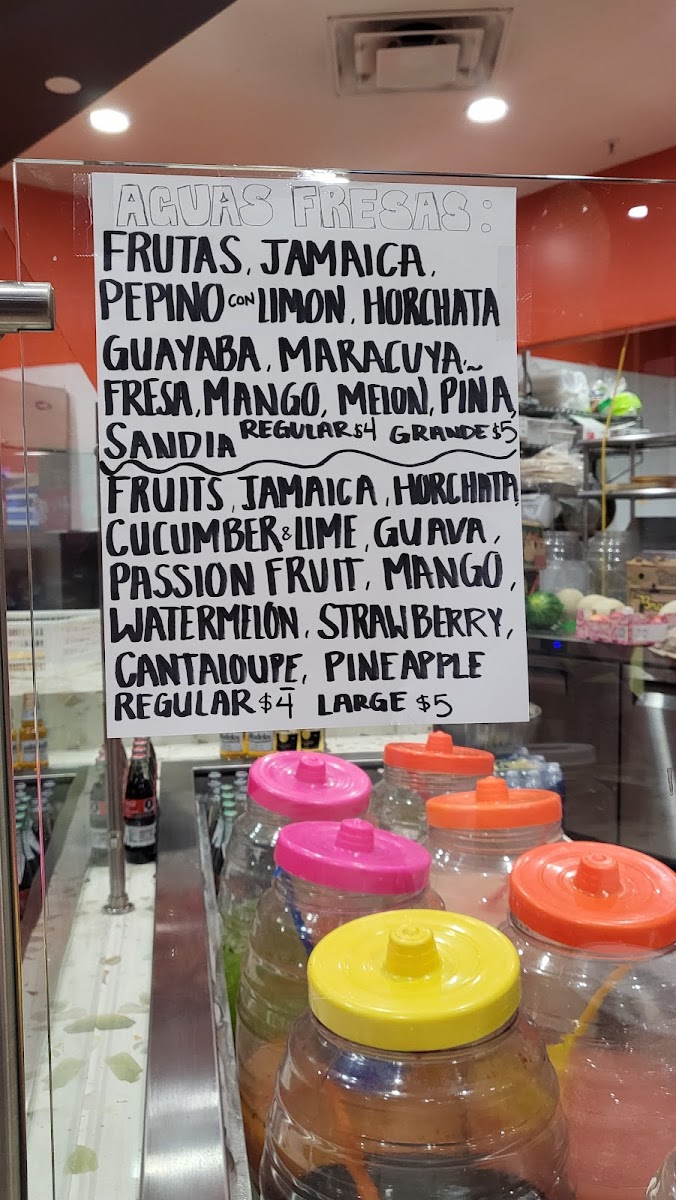 AGUAS FRESAS:
FRUTAS, JAMAICA,
PEPINO CON LIMON, HORCHATA
GUAYABA, MARACUYA,
FRESA, MANGO, MELON, PIÑA,
SANDIA REGULAR $4 GRANDE $5
FRUITS, JAMAICA, HORCHATA,
CUCUMBER & LIME, GUAVA,
PASSION FRUIT, MANGO,
WATERMELON, STRAWBERRY,
CANTALOUPE, PINEAPPLE
REGULAR $4 LARGE $5